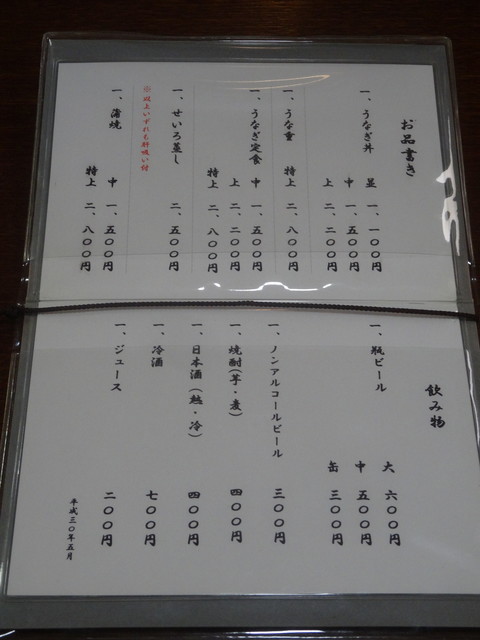 お品書き
一、うなぎ丼 並 一、一〇〇円
中 一、五〇〇円
上 二、二〇〇円
一、うな重 特上 二、八〇〇円
一、うなぎ定食 中 一、五〇〇円
上 二、二〇〇円
特上 二、八〇〇円
一、せいろ蒸し 二、五〇〇円
※以上いずれも肝吸い付
一、蒲焼 中 一、五〇〇円
特上 二、八〇〇円
飲み物
一、瓶ビール 大 六〇〇円
中 五〇〇円
缶 三〇〇円
一、ノンアルコールビール 三〇〇円
一、焼酎(芋・麦) 四〇〇円
一、日本酒(熱・冷) 四〇〇円
一、冷酒 七〇〇円
一、ジュース 二〇〇円
平成三〇年五月